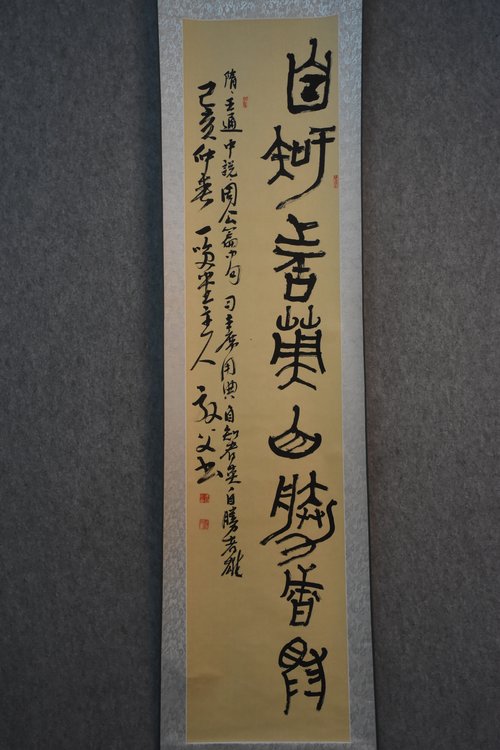 自知者英自勝者雄
隋·王通中說·周公篇中句 习主席用典自知者英自勝者雄
己亥仲春 一 堂主人 父书